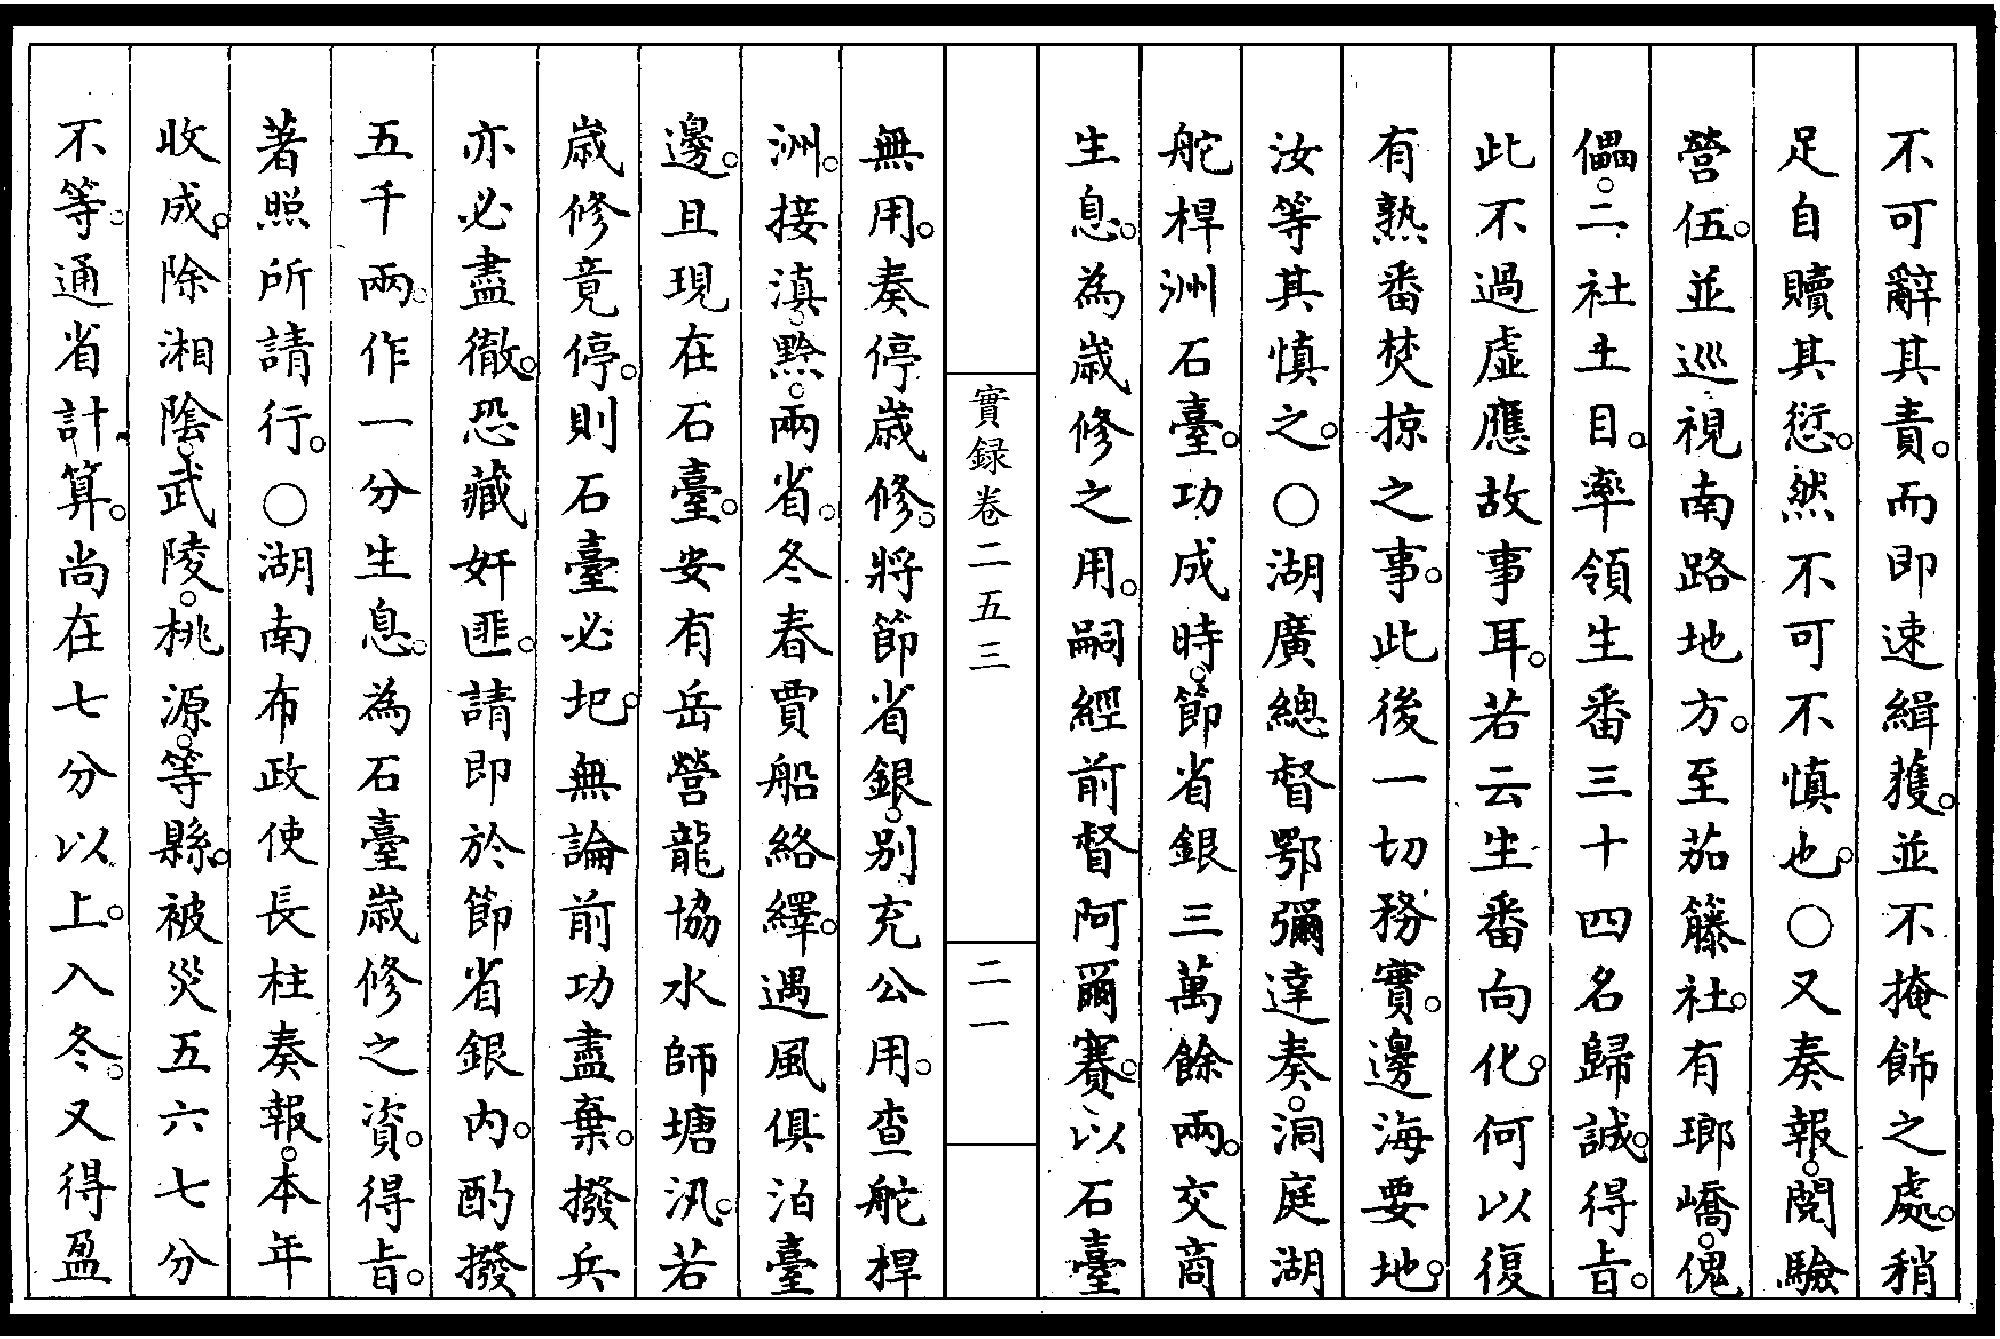 不可辭其責。而即速緝獲。並不掩飾之處。稍
足自贖其愆。然不可不慎也。○又奏報。閱驗
營伍。並巡視南路地方。至茄藤社。有瑯嶠。傀
儡。二社土目。率領生番三十四名歸誠。得旨。
此不過虛應故事耳。若云生番向化。何以復
有熟番焚掠之事。此後一切務實。邊海要地。
汝等其慎之。○湖廣總督鄂彌達奏。洞庭湖
舵桿洲石臺。功成時。節省銀三萬餘兩。交商
生息。為歲修之用。嗣經前督阿爾賽。以石臺
實録卷二五三
二一
無用。奏停歲修。將節省銀。別充公用。查舵桿
洲。接滇。黔。兩省。冬春賈船絡繹。遇風俱泊臺
邊。且現在石臺。安有岳營龍協水師塘汛。若
歲修竟停。則石臺必圯。無論前功盡棄。撥兵
亦必盡徹。恐藏奸匪。請即於節省銀內。酌撥
五千兩。作一分生息。為石臺歲修之資。得旨。
著照所請行。○湖南布政使長柱奏報。本年
收成。除湘陰。武陵。桃源。等縣。被災五六七分
不等。通省計算。尚在七分以上。入冬。又得盈